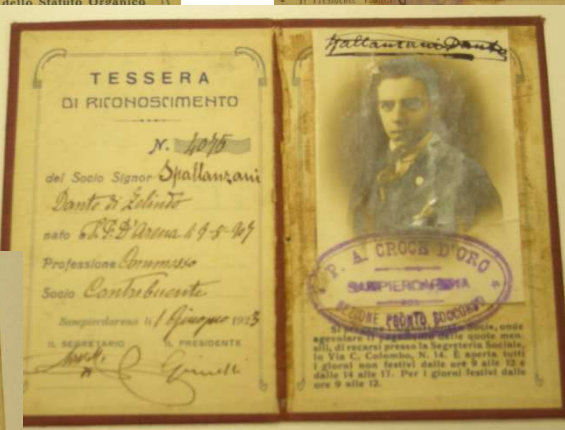 dello Statuto Organico
TESSERA
DI RICONOSCIMENTO
N. 4075
del Socio Signor Spallanzani
Dante di Zelindo
nato a S. P. D'Arena il 9-8-907
Professione Commesso
Socio Contribuente
Sampierdarena li 1 Giugno 1923
IL SEGRETARIO IL PRESIDENTE
Spallanzani Dante
P. A. CROCE D'ORO
SAMPIERDARENA
SEZIONE PRONTO SOCCORSO
Si Socio, onde
agevolare il pagamento delle quote men-
sili, di recarsi presso la Segreteria Sociale,
in Via C. Colombo, N. 14. È aperta tutti
i giorni non festivi dalle ore 9 alle 12 e
dalle 14 alle 17. Per i giorni festivi dalle
ore 9 alle 12.